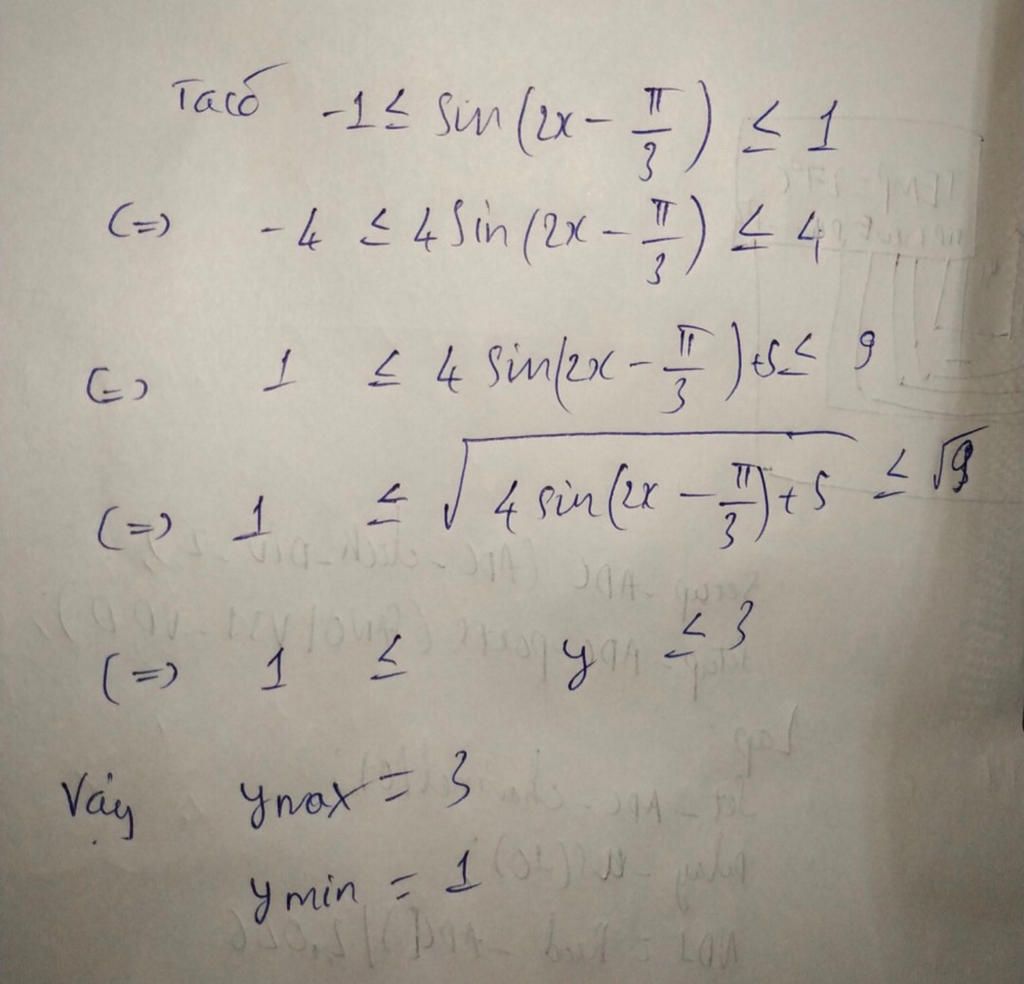 Ta có -1 ≤ sin(2x - π/3) ≤ 1
(=) -4 ≤ 4 sin(2x - π/3) ≤ 4
(=) 1 ≤ 4 sin(2x - π/3) + 5 ≤ 9
(=) 1 ≤ √(4 sin(2x - π/3) + 5) ≤ √9
(=) 1 ≤ y ≤ 3
Vậy ymax = 3
ymin = 1